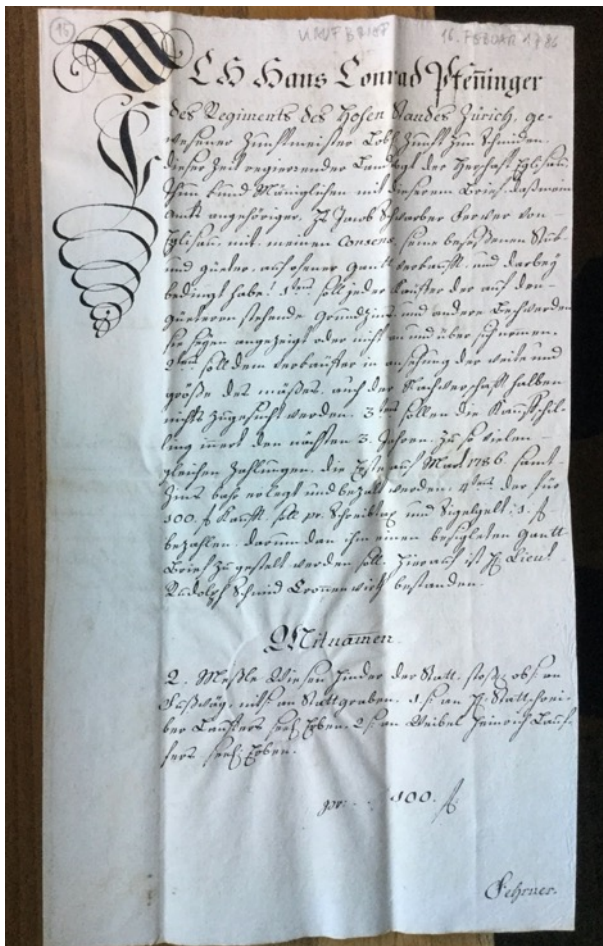 15 KAUFBRIEF 16. FEBUAR 1786
ICH Hans Conrad Pfenninger
des Regiments des Hohen Standes Zürich, ge-
wesener Zunftmeister Lobl. Zunft zum Schmiden
dieser Zeit regierender Landvogt der Herrschaft Eglisau
Thun kund Männiglichen mit diserem Brief, daß mein
Amts angehöriger, Jacob von
Eglisau, mit meinem Consens, seine
und güeter, auf ofener Gantt verkaufft, und darbey
bedingt habe! 1tens soll jeder Käuffer der auf den
güetern stehende Grundzins, und andere Beschwerden
sie seyen angezeigt oder nicht an und über sich nemen.
2tens soll dem Verkäuffer in ansehung der weite und
größe des mäßes, auch der Nachwerschafft halben
nichts zugesucht werden. 3tens sollen die Kauffschil-
ling innert den nächsten 3. Jahren, zu so vielen
gleichen Zahlungen, die Erste auf Mart. 1786 samt
Zins bahr erlegt und bezalt werden. 4tens der für
100. f Kaufft, soll pr. Schreibtax und Sigelgelt 1. f
bezahlen, darum dan ihm einen besigleten Gantt
Brief zu gestelt werden soll. Hierauf ist Hr. Lieut.
Rudolph Schmid Cronenwirth bestanden.
Mitnamen.
2. Mäßle Wiesen hinder der Statt, stoßt obs. an
Fußwäg, nids. an Stattgraben, 1.s. an Hr. Stattschrei-
ber Lauffers seel. Erben, 2.s. an Weibel Heinrich Lauf-
fers seel. Erben.
pr. 100. f
Fehrner.